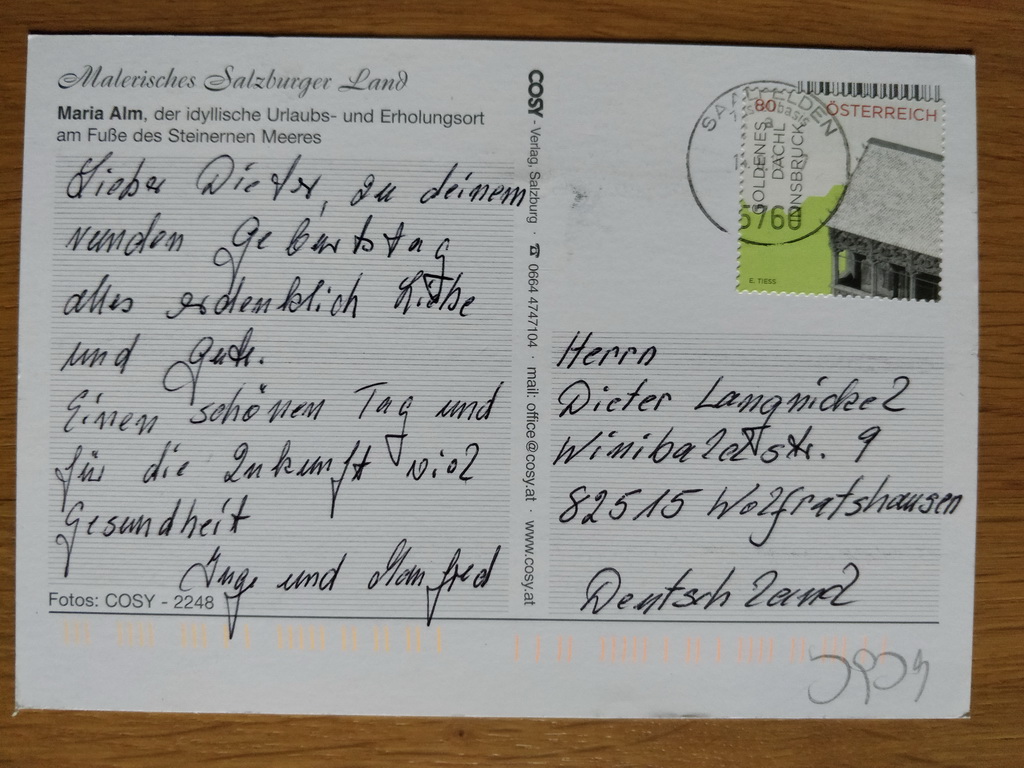 Malerisches Salzburger Land
Maria Alm, der idyllische Urlaubs- und Erholungsort
am Fuße des Steinernen Meeres
Lieber Dieter, zu deinem
runden Geburtstag
alles erdenklich Liebe
und Gute.
Einen schönen Tag und
für die Zukunft viel
Gesundheit
Inge und Manfred
Fotos: COSY - 2248
COSY - Verlag, Salzburg · ☎ 0664 4747104 · mail: office@cosy.at · www.cosy.at
SAALFELDEN
5760
80
ÖSTERREICH
GOLDENES
DACHL
INNSBRUCK
E. TIESS
Herrn
Dieter Langnickel
Winibaldstr. 9
82515 Wolfratshausen
Deutschland